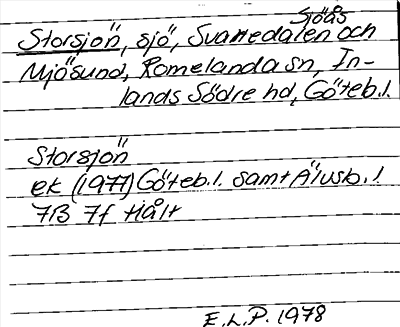 Sjöås
Storsjön, sjö, Svartedalen och
Mjösund, Romelanda sn, In-
lands Södre hd, Göteb.l.
Storsjön
ek (1977) Göteb.l. samt Älvsb.l
7B 7f Hålt
E.L.P. 1978